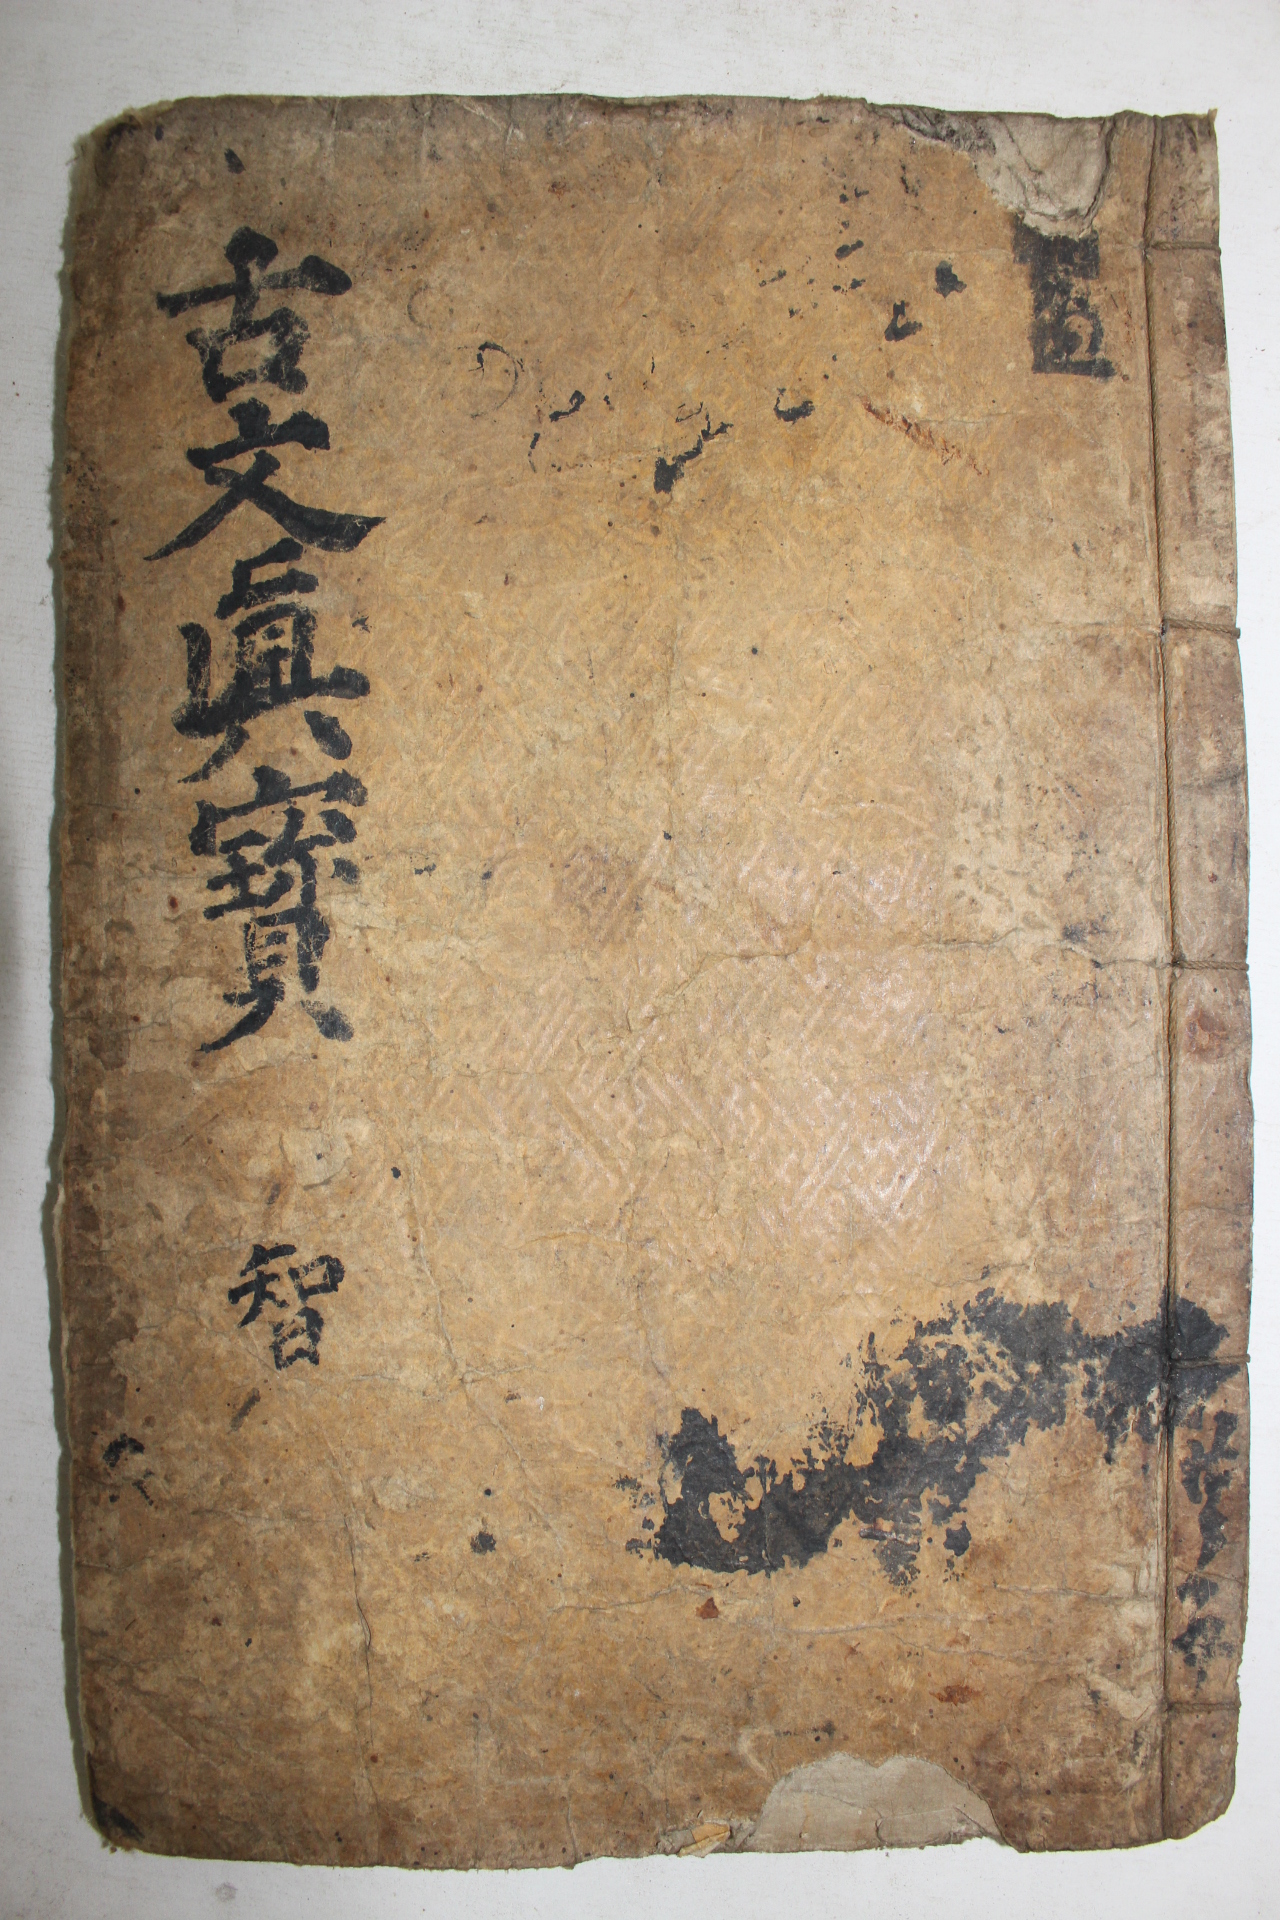 古文眞寶 智